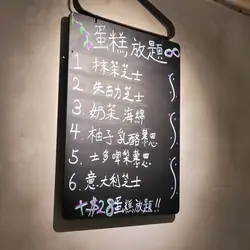 蛋糕放題∞
1 抹茶芝士
2. 朱古力芝士
3. 奶茶海綿
4. 柚子乳酪慕思
5. 士多啤梨慕思
6. 意大利芝士
+$28蛋糕放題!!